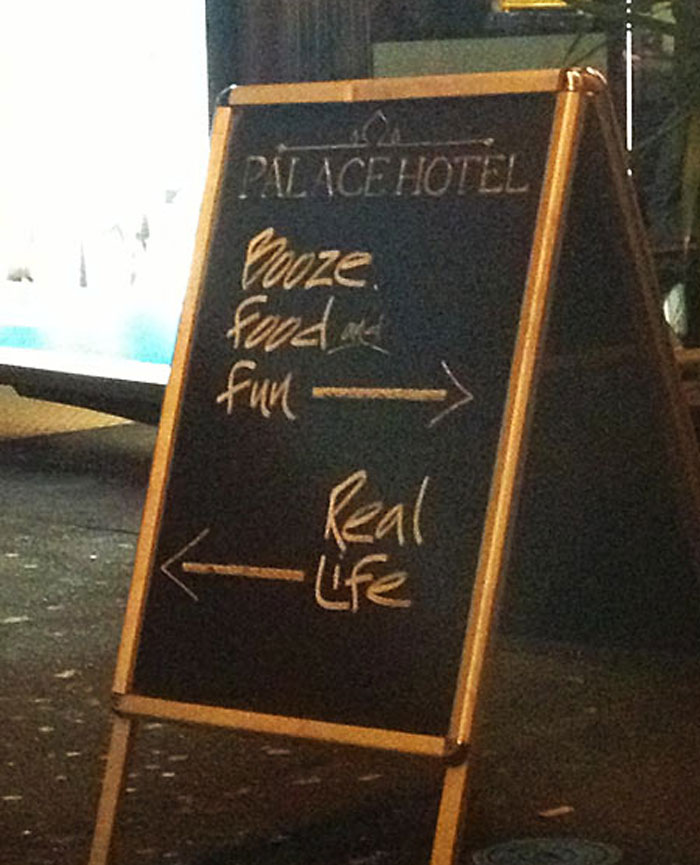 PALACE HOTEL
Booze.
Food and
Fun
Real
Life